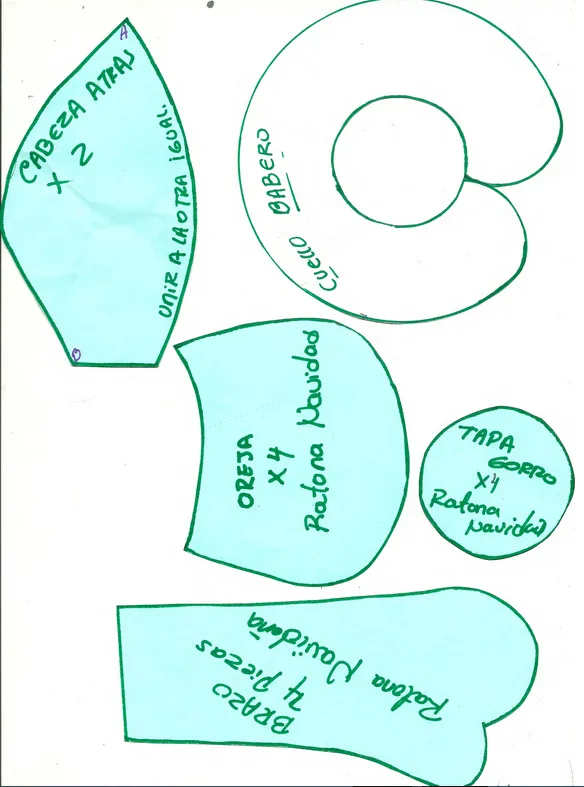 A
CABEZA ATRAS
X 2
UNIR A LA OTRA IGUAL
B
CUELLO BABERO
OREJA
X4
Ratona Navidad
TAPA
GORRO
X4
Ratona
Navidad
BRAZO
4 Piezas
Ratona Navideña